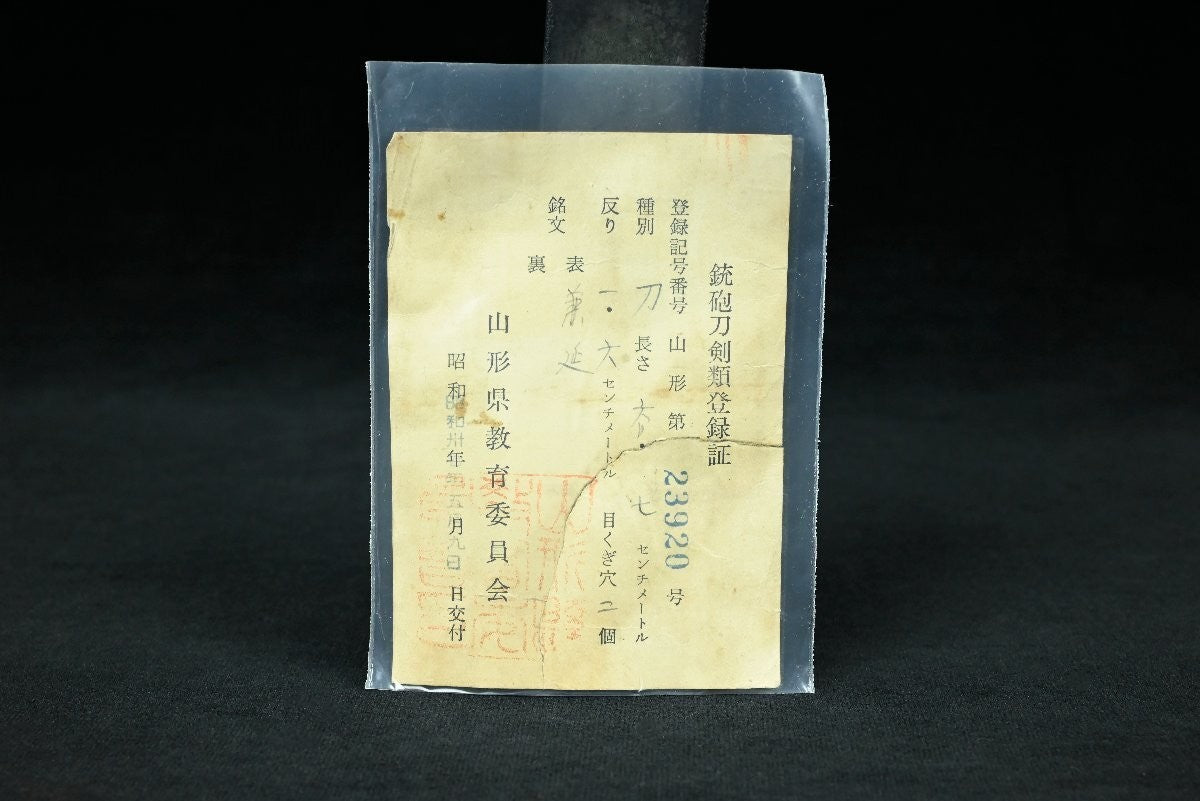 銃砲刀剣類登録証
登録記号番号 山形第 23920 号
種別 刀 長さ 六 . 七 センチメートル
反り 一.六 センチメートル 目くぎ穴 二 個
銘文 表 兼延
裏
山形県教育委員会
昭和 年 月 日交付
昭和卅年五月九日